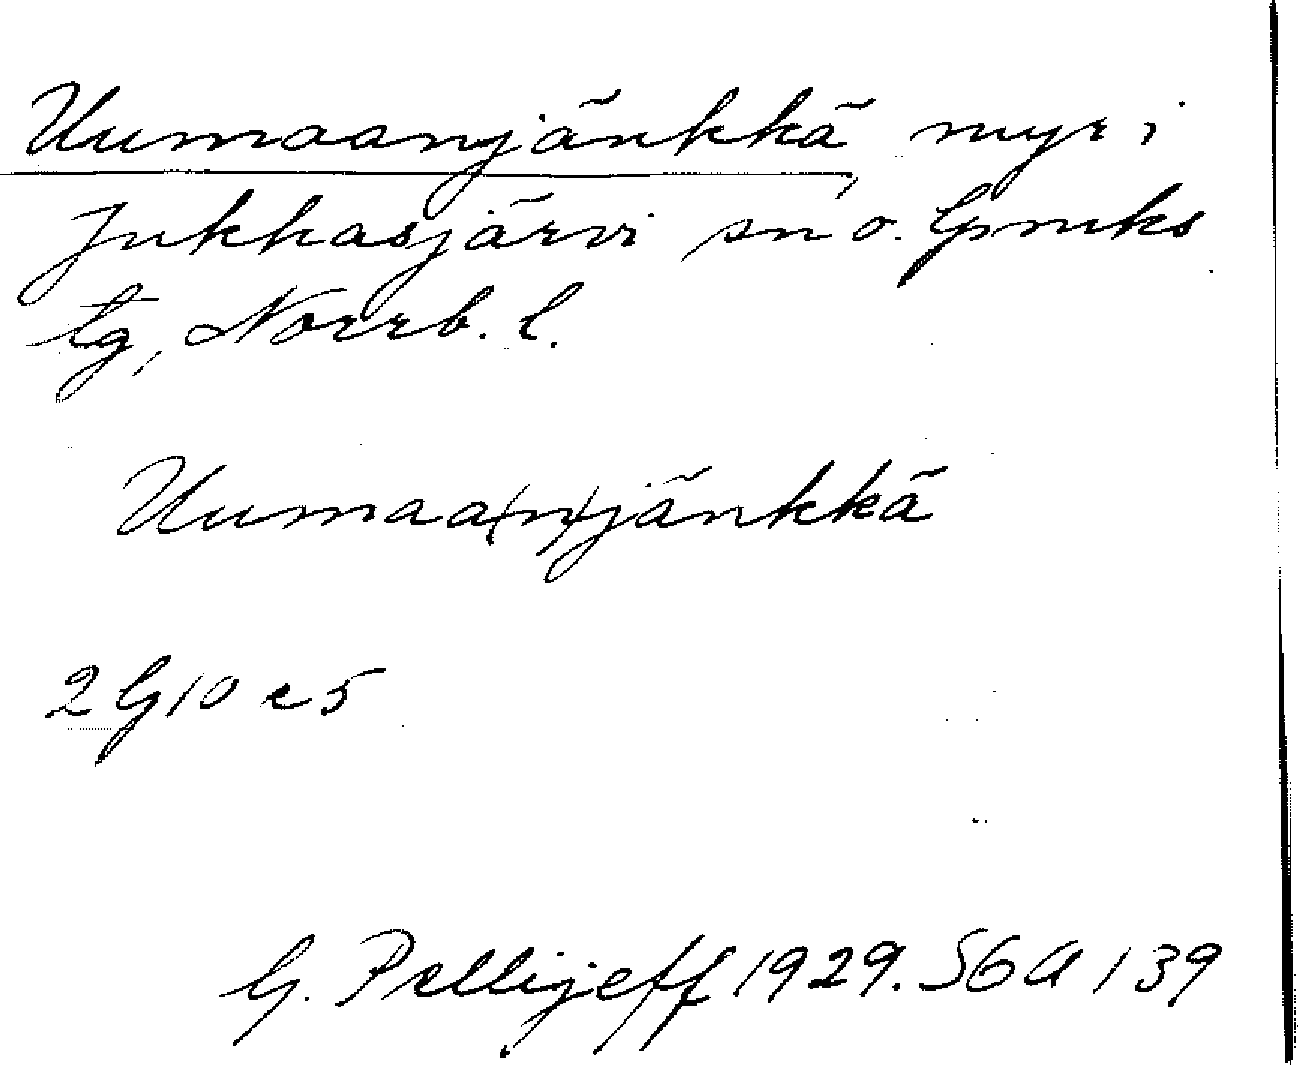 Uumaanjänkkä, myr i
Jukkasjärvi sn o. Gnmks
lg, Norrb. l.
Uumaa(n)jänkkä
2 G 10 e 5
G. Pellijeff 1929. S6a 139